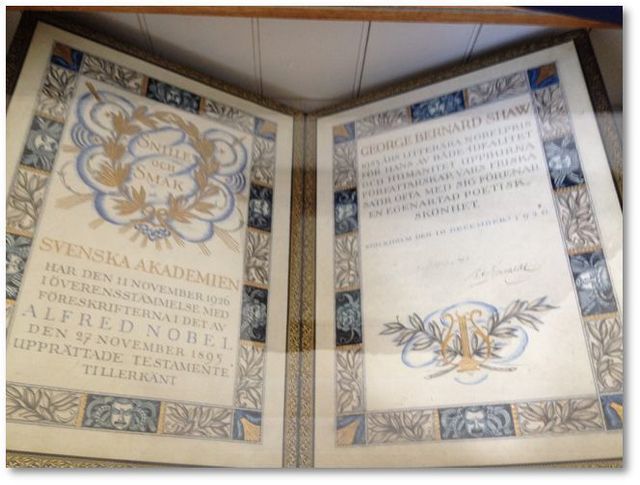 SNILLE
OCH
SMAK
SVENSKA AKADEMIEN
HAR DEN 11 NOVEMBER 1926
I ÖVERENSSTÄMMELSE MED
FÖRESKRIFTERNA I DET AV
ALFRED NOBEL
DEN 27 NOVEMBER 1895
UPPRÄTTADE TESTAMENTE
TILLERKÄNT
GEORGE BERNARD SHAW
1925 ÅRS LITTERÄRA NOBELPRIS
FÖR HANS AV BÅDE IDEALITET
OCH HUMANITET UPPBURNA
FÖRFATTARSKAP, VARS FRISKA
SATIR OFTA MED SIG FÖRENAR
EN EGENARTAD POETISK
SKÖNHET.
STOCKHOLM DEN 10 DECEMBER 1926